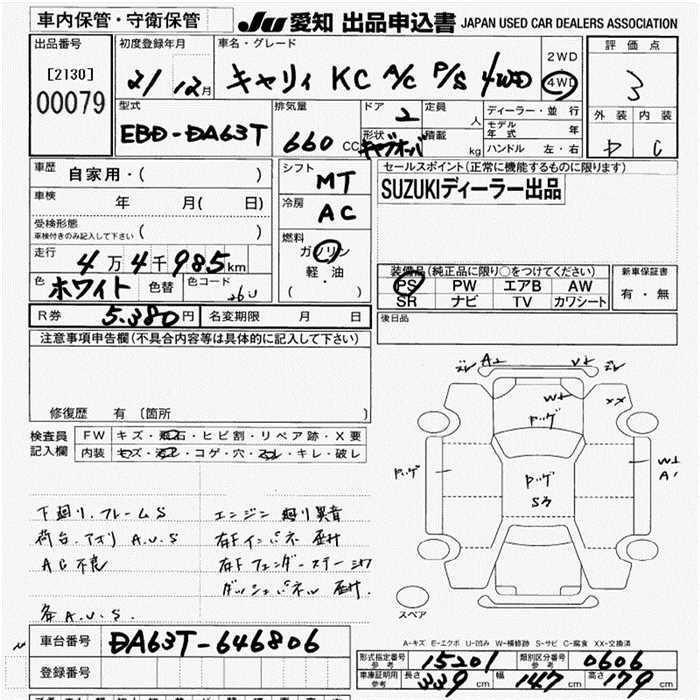 車内保管・守衛保管
JU 愛知 出品申込書 JAPAN USED CAR DEALERS ASSOCIATION
出品番号
[2130]
00079
初度登録年月
21 12月
車名・グレード
キャリィ KC A/C P/S 4WD
2WD
4WD
評価点
3
外装 内装
D C
型式
EBD-DA63T
排気量
660 cc
ドア 2
形状 キャブオーバ
定員 人
積載 kg
ディーラー・並行
モデル年式 年
ハンドル 左・右
車歴 自家用・( )
車検 年 月( 日)
受検形態
車検付きのみ記入して下さい ( )
走行 4万4千985km
色 ホワイト 色替 色コード 26U
シフト
MT
冷房
AC
燃料
ガソリン
軽・油
( ・ )
セールスポイント(正常に機能するものに限ります)
SUZUKIディーラー出品
装備品(純正品に限り○をつけてください)
PS PW エアB AW
SR ナビ TV カワシート
新車保証書
有・無
後日品
R券 5,380円 名変期限 月 日
注意事項申告欄(不具合内容等は具体的に記入して下さい)
修復歴 有 〔箇所 〕
検査員記入欄
FW キズ・飛石・ヒビ割・リペア跡・X要
内装 キズ・汚レ・コゲ・穴・スレ・キレ・破レ
下廻り.フレームS
荷台.アオリ A.U.S
AC不良
各A.U.S.
エンジン 廻り異音
右Fインパネ
右Fフェンダーステー
ダッシュパネル
ズレ A1 V1 ズレ
W1
ドッグ
XX
ドッグ
ドッグ
S3
W1
A1
スペア
A-キズ E-エクボ U-凹み W-補修跡 S-サビ C-腐食 XX-交換済
車台番号 DA63T-646806
登録番号
形式指定番号 参考 15201
類別区分番号 参考 0606
車庫証明用 参考 長さ 339cm 幅 147cm 高さ 179cm